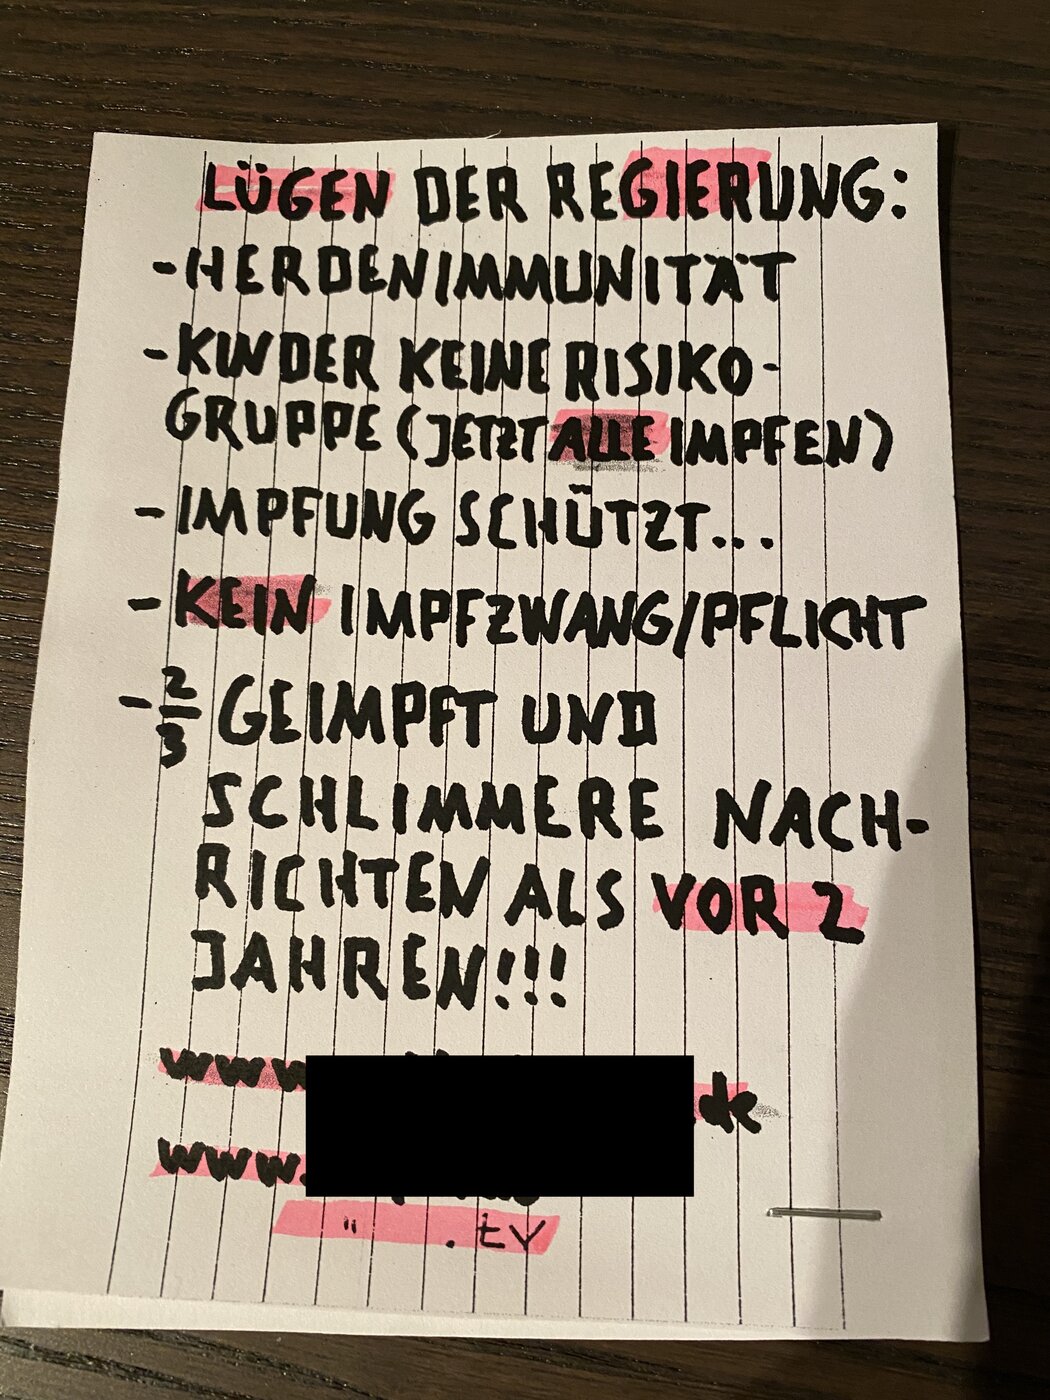 LÜGEN DER REGIERUNG:
-HERDENIMMUNITÄT
-KINDER KEINE RISIKO-
GRUPPE (JETZT ALLE IMPFEN)
-IMPFUNG SCHÜTZT...
-KEIN IMPFZWANG/PFLICHT
-2/3 GEIMPFT UND
SCHLIMMERE NACH-
RICHTEN ALS VOR 2
JAHREN!!!
www. .de
www.
" .tv